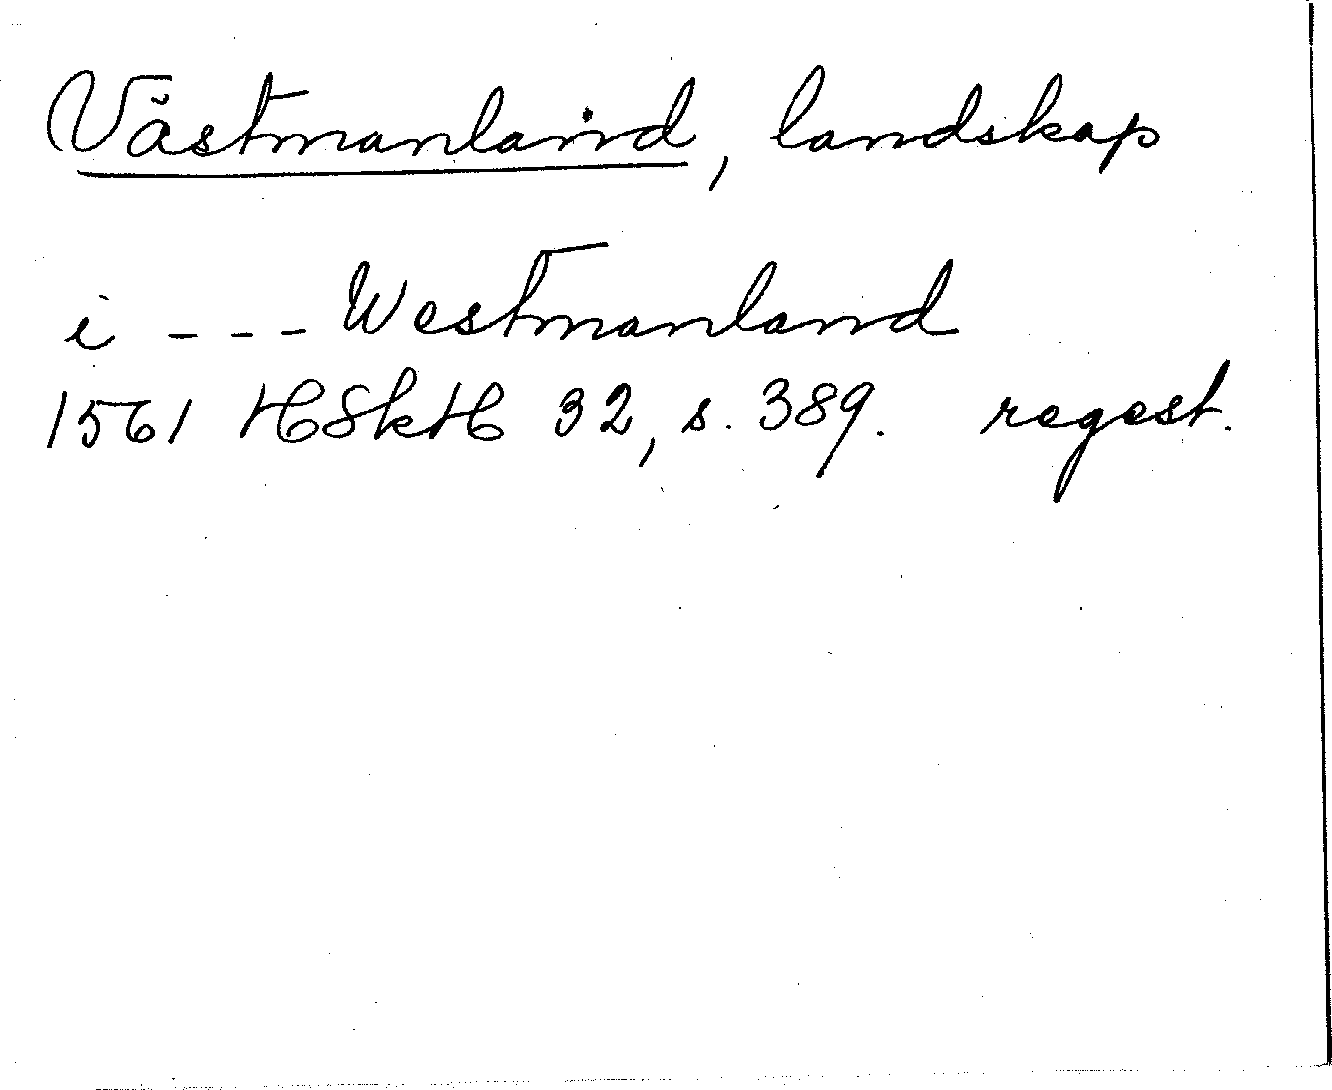 Västmanland, landskap
i --- Westmanland
1561 HSkH 32, s. 389. regest.